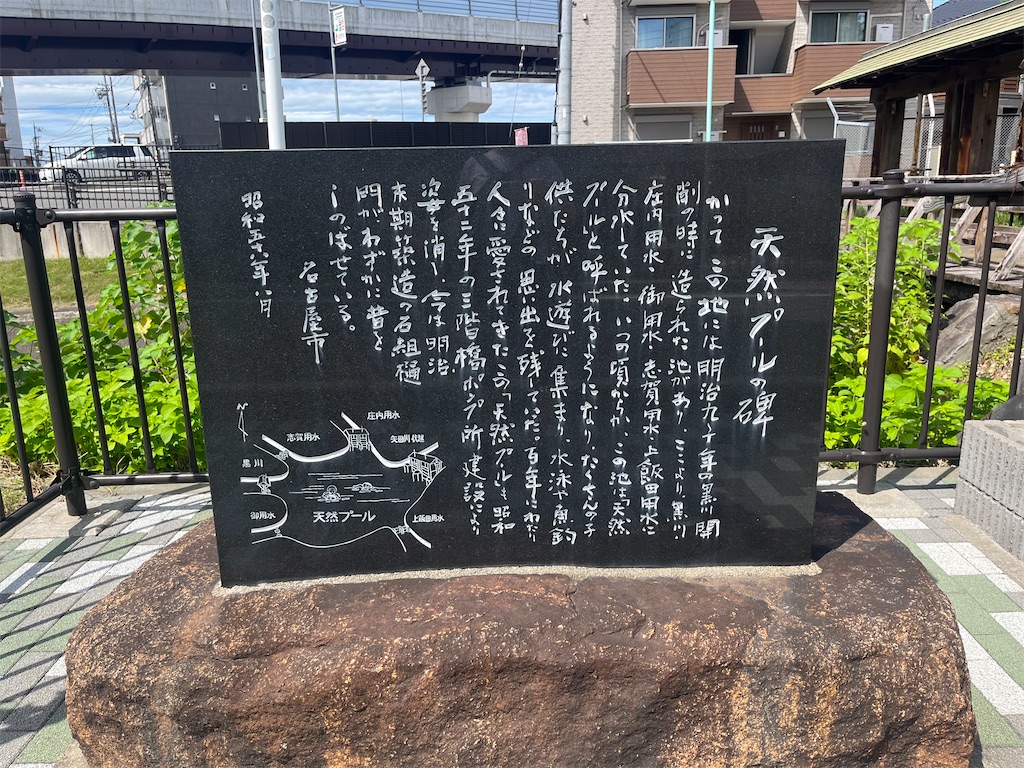 天然プールの碑
かつて この地には明治九～十年の黒川開
削の時に造られた池があり、ここより黒川・
庄内用水・御用水・志賀用水・上飯田用水に
分水していた。いつの頃からか、この池は天然
プールと呼ばれるようになり、たくさんの子
供たちが水遊びに集まり、水泳や魚釣
りなどの思い出を残していた。百年にわたり
人々に愛されてきたこの「天然プール」も昭和
五十二年の三階橋ポンプ所建設により
姿を消し、今は明治
末期築造の石組樋
門がわずかに昔を
しのばせている。
名古屋市
昭和五十六年八月
庄内用水
志賀用水
矢田川伏越
黒川
御用水
天然プール
上飯田用水
N